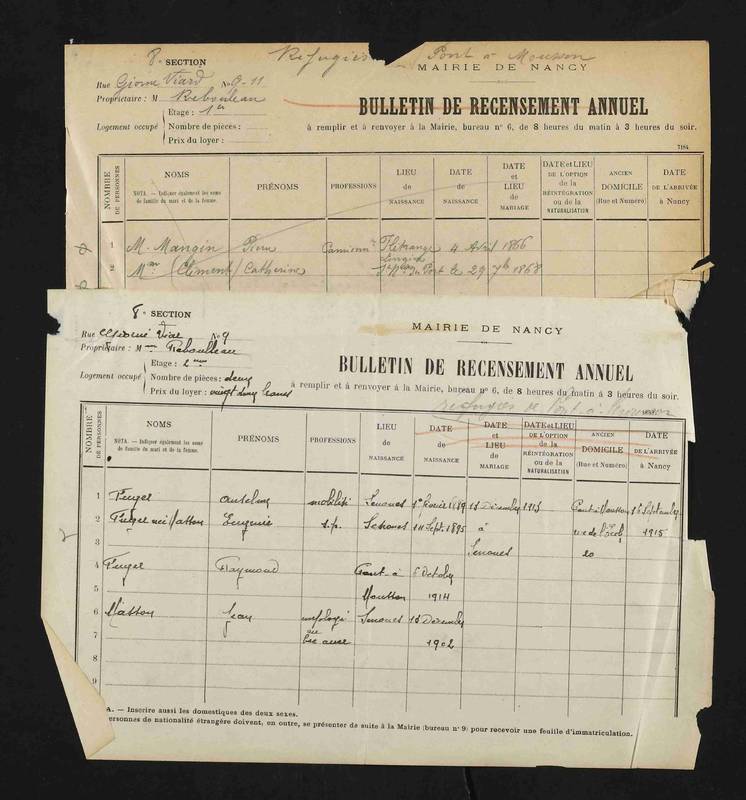 8e SECTION
Refugiés Pont à Mousson
MAIRIE DE NANCY
Rue Giorné Viard No 9-11
Propriétaire : M Rebouleau
Etage : 1er
Logement occupé
Nombre de pièces :
Prix du loyer :
BULLETIN DE RECENSEMENT ANNUEL
à remplir et à renvoyer à la Mairie, bureau n° 6, de 8 heures du matin à 3 heures du soir.
7184
NOMBRE DE PERSONNES
NOMS
NOTA. — Indiquer également les noms de famille du mari et de la femme.
PRÉNOMS
PROFESSIONS
LIEU de NAISSANCE
DATE de NAISSANCE
DATE et LIEU de MARIAGE
DATE et LIEU DE L'OPTION de la RÉINTÉGRATION ou de la NATURALISATION
ANCIEN DOMICILE (Rue et Numéro)
DATE DE L'ARRIVÉE à Nancy
1 M. Mangin Pierre Flétrange 4 Avril 1866
2 Mme (Clément) Catherine 29 7b 1868
8e SECTION
MAIRIE DE NANCY
Rue Viard No 9
Propriétaire : Mme Rebouleau
Etage : 2me
Logement occupé
Nombre de pièces : deux
Prix du loyer :
BULLETIN DE RECENSEMENT ANNUEL
à remplir et à renvoyer à la Mairie, bureau n° 6, de 8 heures du matin à 3 heures du soir.
refugiés de Pont à Mousson
NOMBRE DE PERSONNES
NOMS
NOTA. — Indiquer également les noms de famille du mari et de la femme.
PRÉNOMS
PROFESSIONS
LIEU de NAISSANCE
DATE de NAISSANCE
DATE et LIEU de MARIAGE
DATE et LIEU DE L'OPTION de la RÉINTÉGRATION ou de la NATURALISATION
ANCIEN DOMICILE (Rue et Numéro)
DATE DE L'ARRIVÉE à Nancy
1 anselme mobilisé 1889 11 Décembre 1913 Pont-à-Mousson
2 née Matton Eugénie s.p. 11 Sept. 1895 à 1915
3 20
4 Raymond Pont-à 6 Octobre
5 Mousson 1914
6 Matton Jean employé Décembre
7 au 1902
8
9
A. — Inscrire aussi les domestiques des deux sexes.
ersonnes de nationalité étrangère doivent, en outre, se présenter de suite à la Mairie (bureau n° 9) pour recevoir une feuille d'immatriculation.